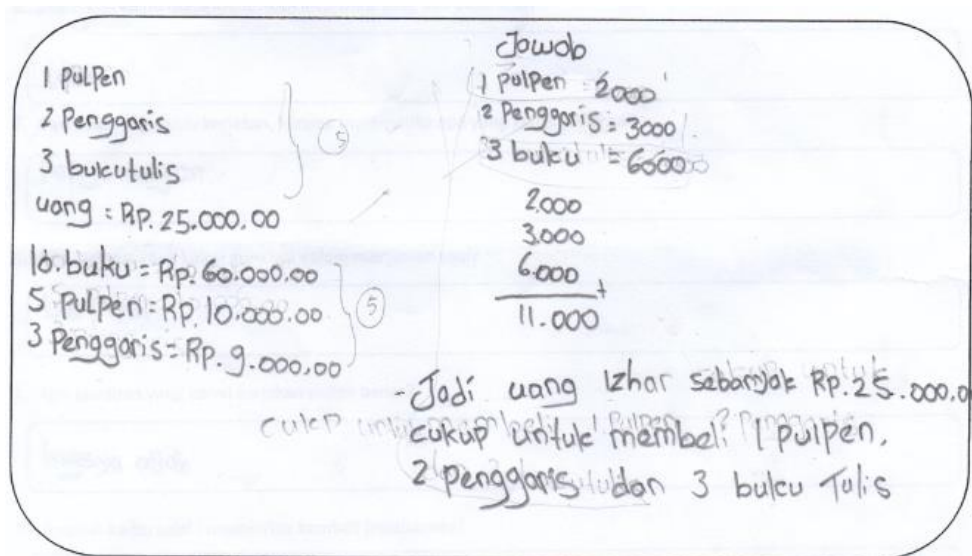 1 Pulpen
2 Penggaris
3 buku tulis
uang = Rp. 25.000.00
10. buku = Rp. 60.000.00
5 Pulpen = Rp. 10.000.00
5
3 Penggaris = Rp. 9.000,00
Jawab
1 Pulpen = 2000
2 Penggaris = 3000
3 buku = 6000
2000
3.000
6.000
+
11.000
-Jadi uang Izhar sebanyak Rp. 25.000,0
cukup untuk membeli 1 pulpen,
2 penggaris dan 3 buku Tulis